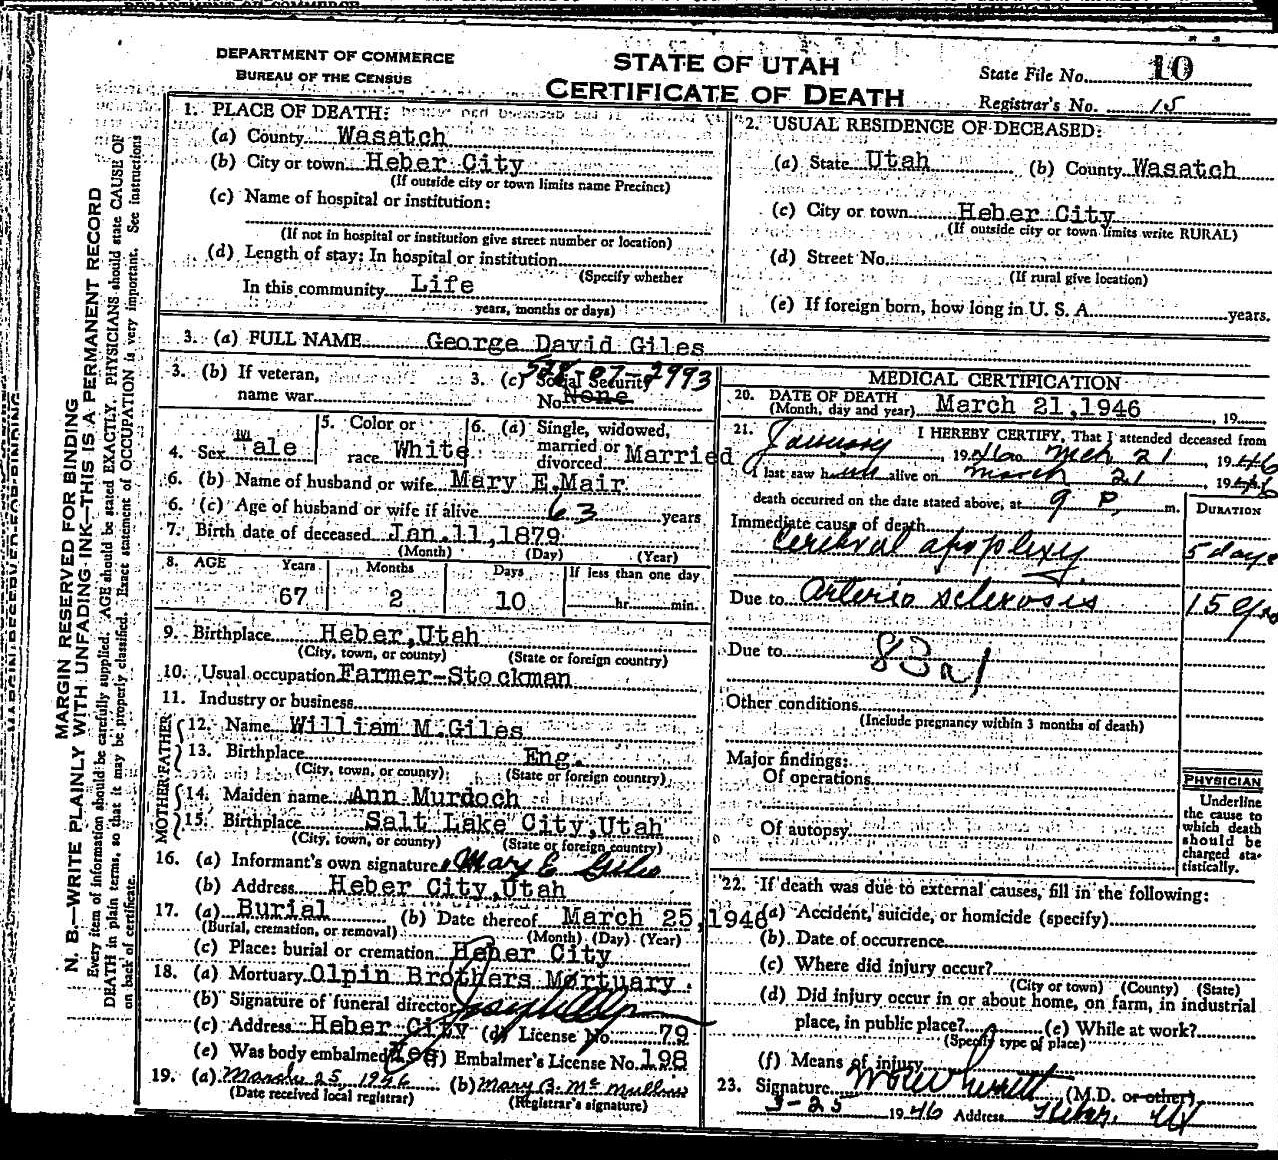 DEPARTMENT OF COMMERCE
BUREAU OF THE CENSUS
STATE OF UTAH
CERTIFICATE OF DEATH
State File No. 10
Registrar's No. 15
MARGIN RESERVED FOR BINDING
N. B.—WRITE PLAINLY WITH UNFADING INK—THIS IS A PERMANENT RECORD
Every item of information should be carefully supplied. AGE should be stated EXACTLY. PHYSICIANS should state CAUSE OF
DEATH in plain terms, so that it may be properly classified. Exact statement of OCCUPATION is very important. See instructions
on back of certificate.
1. PLACE OF DEATH:
(a) County Wasatch
(b) City or town Heber City
(If outside city or town limits name Precinct)
(c) Name of hospital or institution:
(If not in hospital or institution give street number or location)
(d) Length of stay: In hospital or institution
(Specify whether
In this community Life
years, months or days)
2. USUAL RESIDENCE OF DECEASED:
(a) State Utah (b) County Wasatch
(c) City or town Heber City
(If outside city or town limits write RURAL)
(d) Street No.
(If rural give location)
(e) If foreign born, how long in U. S. A. years.
3. (a) FULL NAME George David Giles
3. (b) If veteran,
name war
3. (c) Social Security
No. None
528-07-2993
4. Sex Male
5. Color or
race White
6. (a) Single, widowed,
married or
divorced Married
6. (b) Name of husband or wife Mary E. Mair
6. (c) Age of husband or wife if alive 63 years
7. Birth date of deceased Jan. 11, 1879
(Month) (Day) (Year)
8. AGE Years Months Days If less than one day
67 2 10 hr. min.
9. Birthplace Heber, Utah
(City, town, or county) (State or foreign country)
10. Usual occupation Farmer-Stockman
11. Industry or business
FATHER
12. Name William M. Giles
13. Birthplace Eng.
(City, town, or county) (State or foreign country)
MOTHER
14. Maiden name Ann Murdoch
15. Birthplace Salt Lake City, Utah
(City, town, or county) (State or foreign country)
16. (a) Informant's own signature Mary E Giles
(b) Address Heber City, Utah
17. (a) Burial (b) Date thereof March 25, 1946
(Burial, cremation, or removal) (Month) (Day) (Year)
(c) Place: burial or cremation Heber City
18. (a) Mortuary Olpin Brothers Mortuary.
(b) Signature of funeral director
(c) Address Heber City (d) License No. 79
(e) Was body embalmed Yes (f) Embalmer's License No. 198
19. (a) March 25, 1946 (b) Mary B. McMullin
(Date received local registrar) (Registrar's signature)
MEDICAL CERTIFICATION
20. DATE OF DEATH
(Month, day and year) March 21, 1946, 19
21. I HEREBY CERTIFY, That I attended deceased from
January, 1946 to Mch 21, 1946
I last saw him alive on March 21, 1946
death occurred on the date stated above, at 9 P. m.
DURATION
Immediate cause of death
Cerebral apoplexy 5 days
Due to Arterio sclerosis 15 yrs
Due to
83a1
Other conditions
(Include pregnancy within 3 months of death)
Major findings:
Of operations
Of autopsy
PHYSICIAN
Underline
the cause to
which death
should be
charged sta-
tistically.
22. If death was due to external causes, fill in the following:
(a) Accident, suicide, or homicide (specify)
(b) Date of occurrence
(c) Where did injury occur?
(City or town) (County) (State)
(d) Did injury occur in or about home, on farm, in industrial
place, in public place? (e) While at work?
(Specify type of place)
(f) Means of injury
23. Signature (M.D. or other)
3-25 1946 Address Heber, Ut